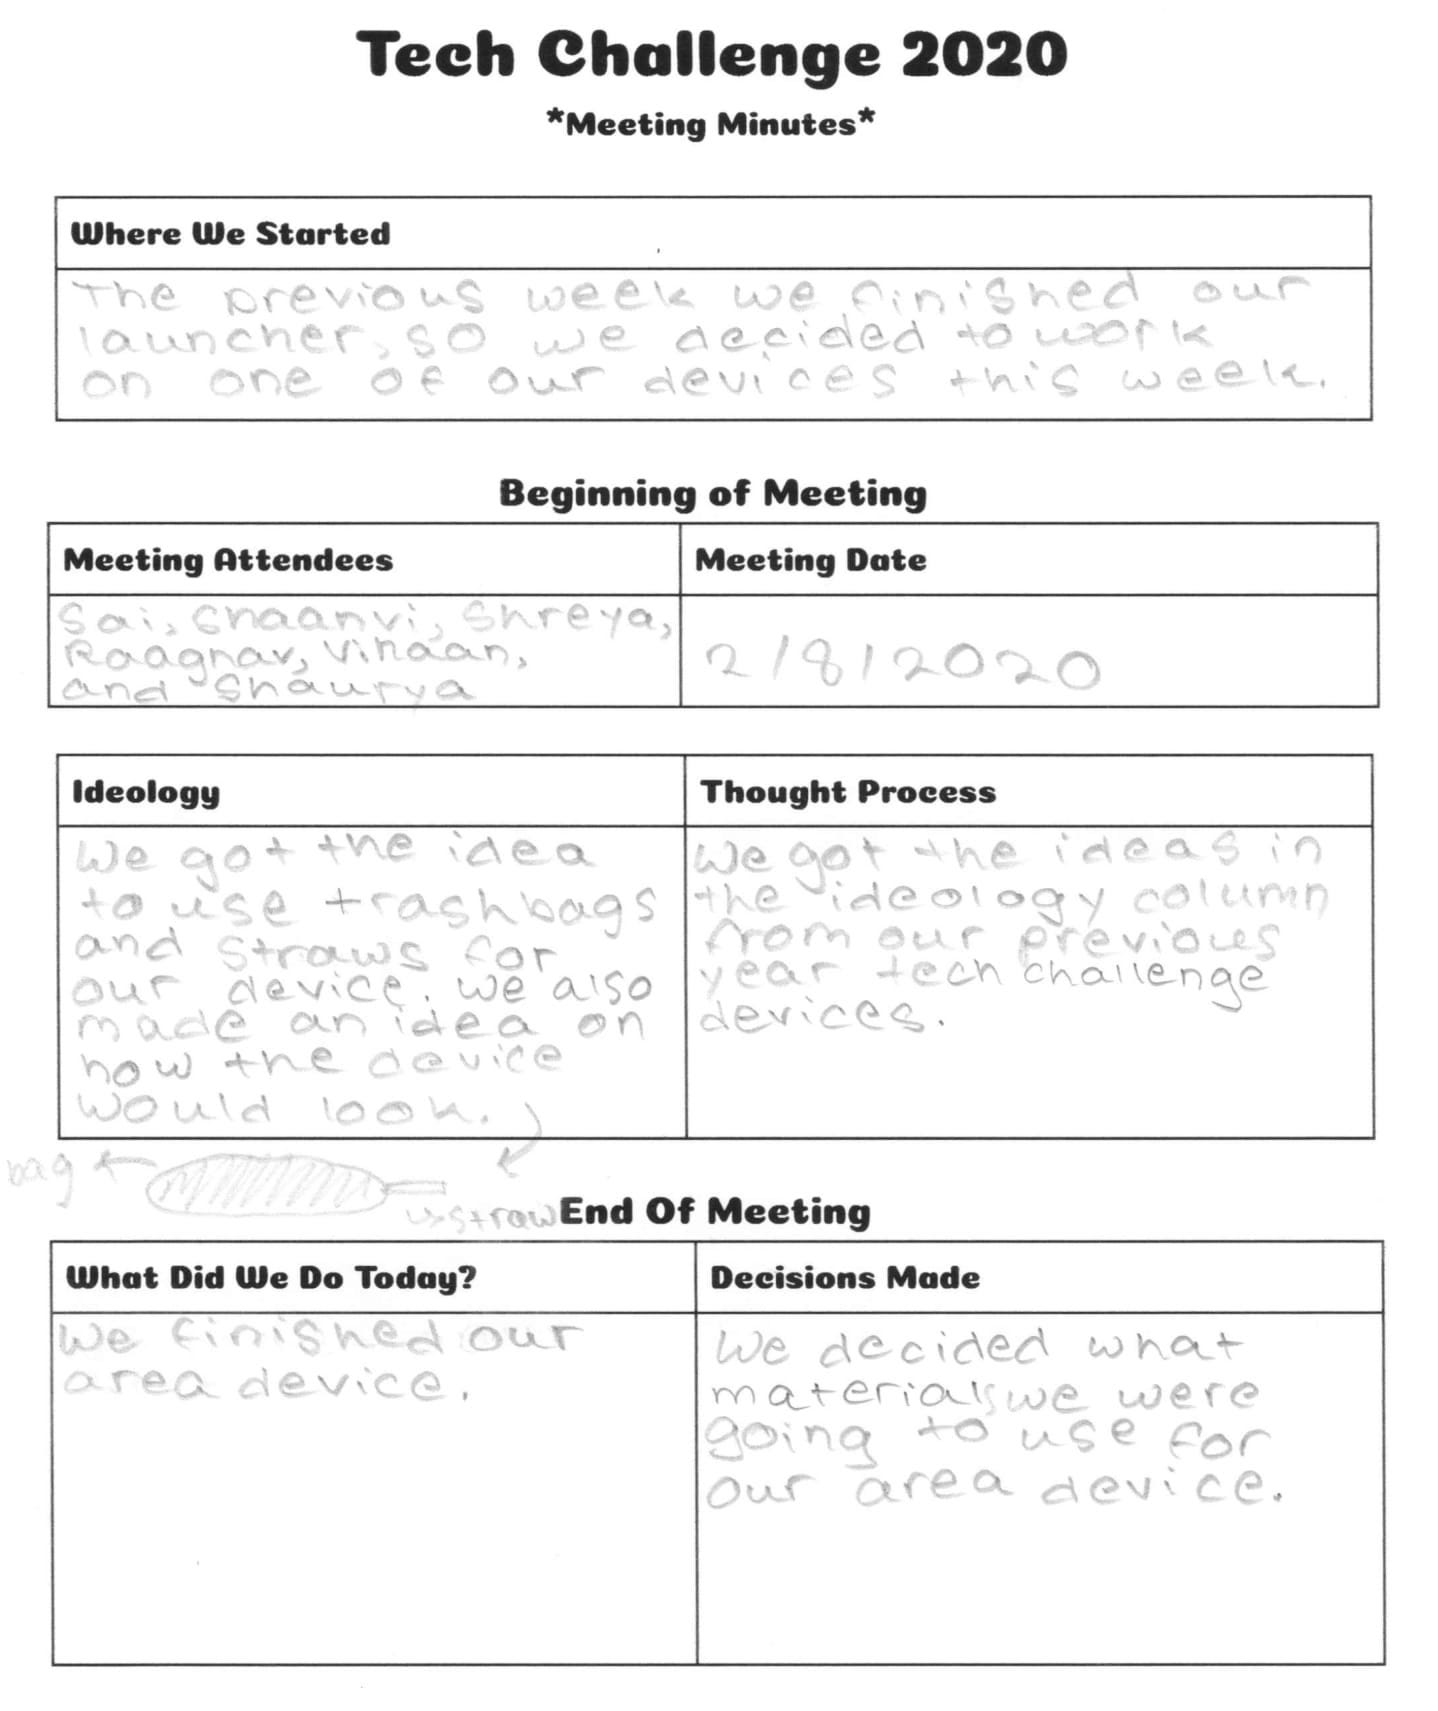 Tech Challenge 2020
*Meeting Minutes*
Where We Started
The previous week we finished our
launcher, so we decided to work
on one of our devices this week.
Beginning of Meeting
Meeting Attendees
Sai, Shaanvi, Shreya,
Raaghav, Vihaan,
and Shaurya
Meeting Date
2/8/2020
Ideology
We got the idea
to use trashbags
and straws for
our device. we also
made an idea on
how the device
would look.
Thought Process
We got the ideas in
the ideology column
from our previous
year tech challenge
devices.
bag
straw
End Of Meeting
What Did We Do Today?
We finished our
area device.
Decisions Made
We decided what
materials we were
going to use for
our area device.